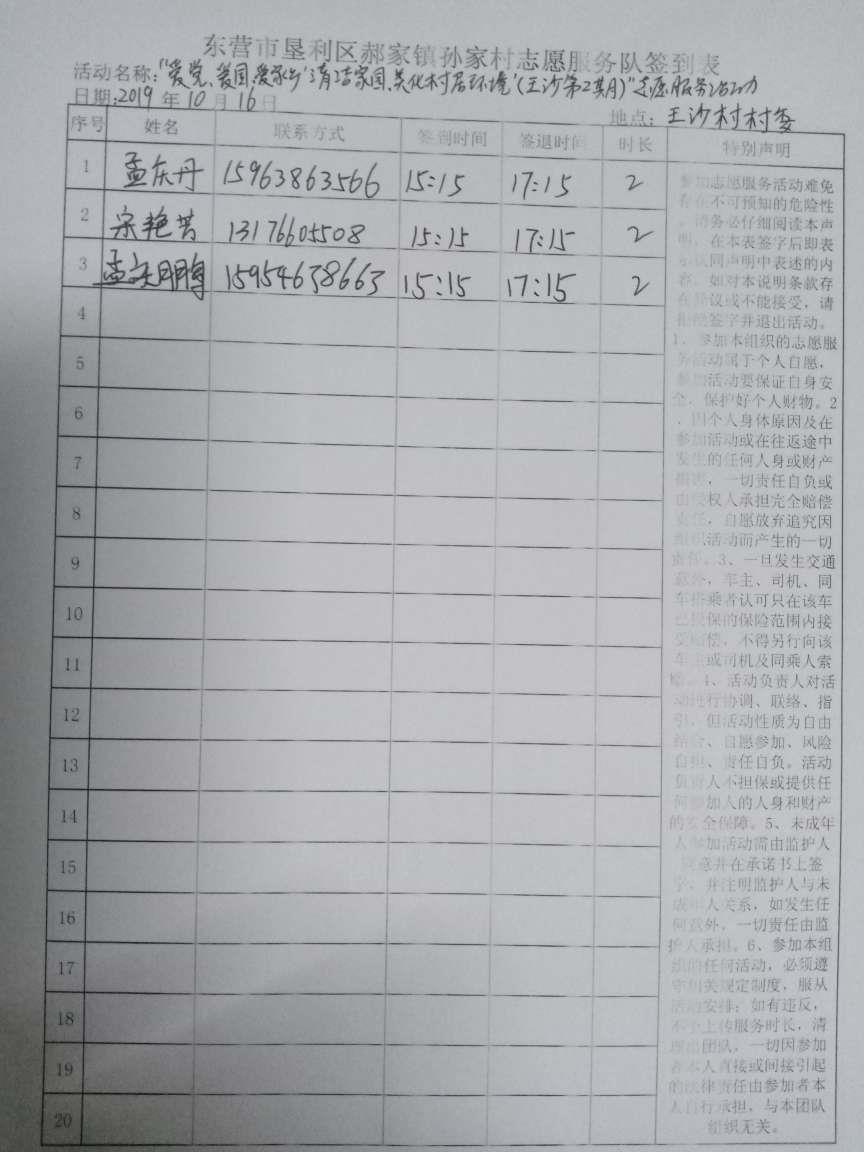 东营市垦利区郝家镇孙家村志愿服务队签到表
活动名称:“爱党、爱国、爱家乡‘清洁家园、美化村居环境’(王沙第2期)”志愿服务活动
日期:2019年10月16日
地点:王沙村村委
序号 姓名 联系方式 签到时间 签退时间 时长 特别声明
1 孟庆丹 15963863566 15:15 17:15 2
2 宋艳芳 13176605508 15:15 17:15 2
3 孟庆鹏 15954638663 15:15 17:15 2
4
5
6
7
8
9
10
11
12
13
14
15
16
17
18
19
20
参加志愿服务活动难免
存在不可预知的危险性
,请务必仔细阅读本声
明,在本表签字后即表
示认同声明中表述的内
容,如对本说明条款存
在异议或不能接受,请
拒绝签字并退出活动。
1、参加本组织的志愿服
务活动属于个人自愿,
参加活动要保证自身安
全,保护好个人财物。2
、因个人身体原因及在
参加活动或在往返途中
发生的任何人身或财产
损害,一切责任自负或
由侵权人承担完全赔偿
责任,自愿放弃追究因
组织活动而产生的一切
责任。3、一旦发生交通
意外,车主、司机、同
车搭乘者认可只在该车
已投保的保险范围内接
受赔偿,不得另行向该
车主或司机及同乘人索
赔。4、活动负责人对活
动进行协调、联络、指
引,但活动性质为自由
结合、自愿参加、风险
自担、责任自负。活动
负责人不担保或提供任
何参加人的人身和财产
的安全保障。5、未成年
人参加活动需由监护人
同意并在承诺书上签
字,并注明监护人与未
成年人关系,如发生任
何意外,一切责任由监
护人承担。6、参加本组
织的任何活动,必须遵
守相关规定制度,服从
活动安排;如有违反,
不予上传服务时长,清
理出团队,一切因参加
者本人直接或间接引起
的法律责任由参加者本
人自行承担,与本团队
组织无关。